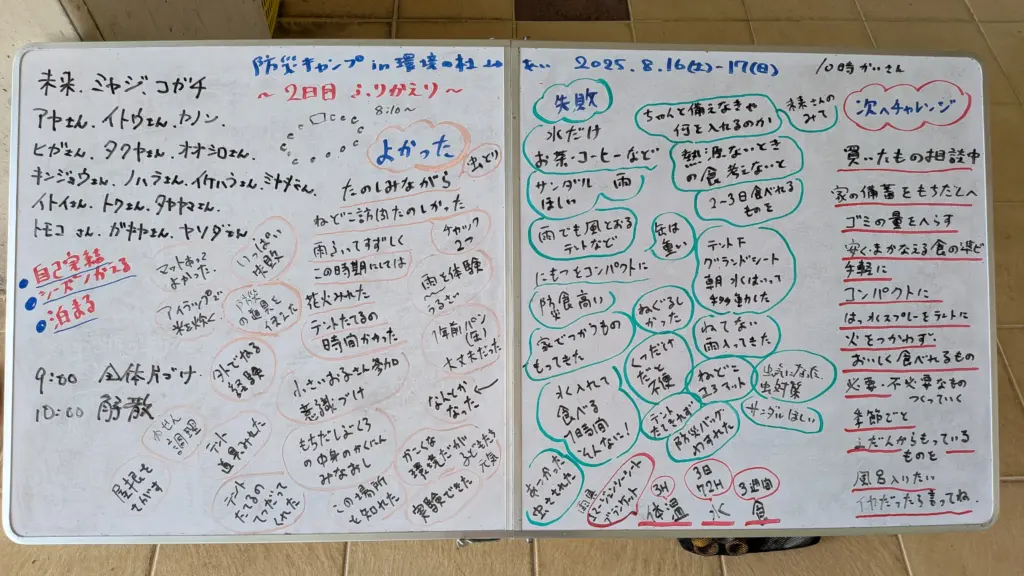 防災キャンプ in 環境の杜ふれあい 2025.8.16(土)-17(日)
10時かいさん
〜2日目 ふりかえり〜
8:10〜
未来、ミヤジ、コガチ
アヤさん、イトウさん、カノン
ヒガさん、タクヤさん、オオシロさん
キンジョウさん、ノハラさん、イケハラさん、ミナミさん
イトイさん、トクさん、タヤマさん
トモコさん、ガキヤさん、ヤソダさん
自己完結
シーズンかえる
泊まる
9:00 全体片づけ
10:00 解散
よかった
虫よけ
たのしみながら
ねどこ訪問たのしかった
チャック2つ
雨ふってすずしく
この時期にしては
花火みれた
雨も体験
うるさい
テントたてるの
時間かかった
1年前パン
(缶)
大丈夫だった
マットあって
よかった
いっぱい
失敗
アイラップで
米を炊く
防災
の道具
外でねる
経験
小さいお子さん参加
意識づけ
なんとか
なった
おせん
調理
テント
道具みせた
もちだしぶくろ
の中身のかくにん
みなおし
屋根を
さがす
テント
たてるの
てつだって
くれた
この場所
を知れた
環境だが
元気
実験できた
失敗
氷だけ
お茶・コーヒーなど
ちゃんと備えなきゃ
何を入れるのか
未来さんの
みて
サンダル 雨
ほしい
熱源ないとき
の食 考えないと
2〜3日食べれる
ものを
雨でも風とおる
テントなど
缶は
重い
テント下
グランドシート
朝 水はいって
移動した
にもつをコンパクトに
防食高い
ねぐるし
かった
家どっからもの
もってきた
くつだけ
だと
不便
ねてない
雨入ってきた
ねどこ
2コマット
虫気になった
虫対策
水入れて
食べる
1時間
こんなに!
テント
たてれず
防災バッグ
わすれた
サンダルほしい
あつかった
虫さされた
エマージェンシーシート
ブランケット
3H
体温
3日
72H
水
3週間
食
次へチャレンジ
買いたもの相談中
家の備蓄をもちだしへ
ゴミの量をへらす
安くまかなえる食の選び
手軽に
コンパクトに
はっ水スプレーをテントに
火をつかわず
おいしく食べれるもの
必要・不必要なもの
つくっていく
季節ごと
ふだんからもっている
ものを
風呂入りたい
イヤだったら言ってね